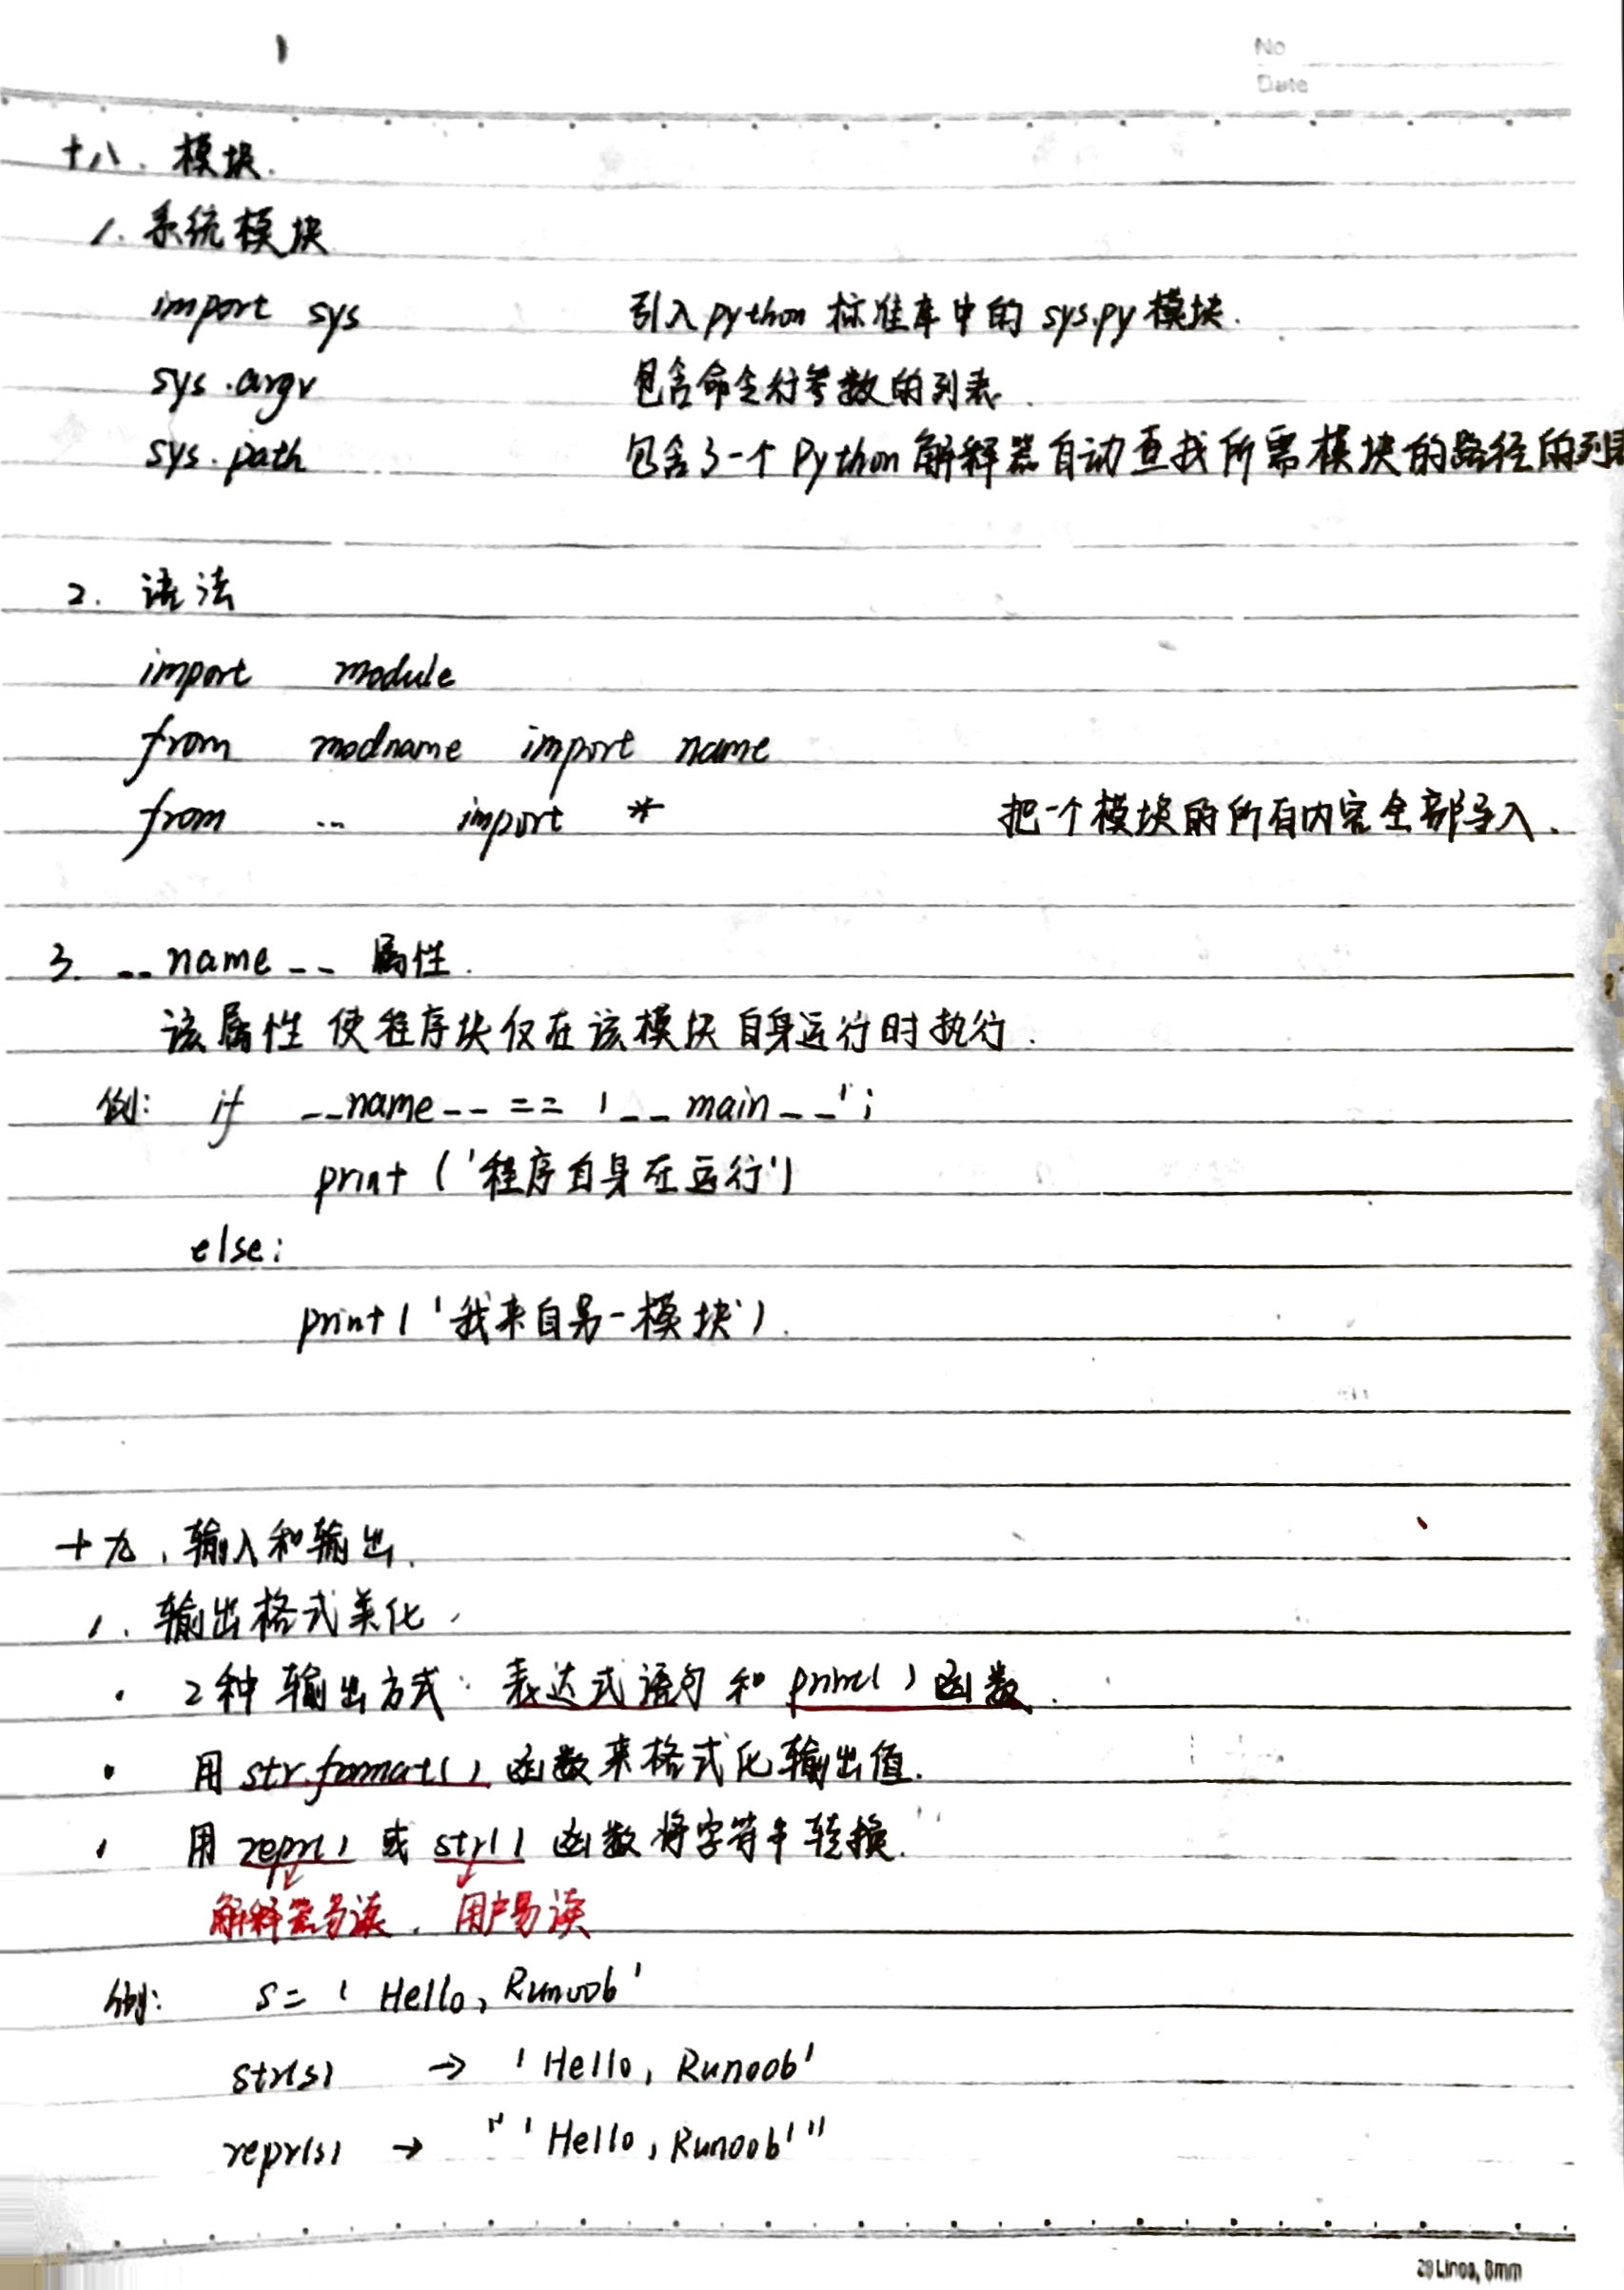 No
Date
十八、模块.
1. 系统模块
import sys 引入python 标准库中的 sys.py 模块.
sys.argv 包含命令行参数的列表.
sys.path 包含了一个 Python 解释器自动查找所需模块的路径的列表
2. 语法
import module
from modname import name
from ... import * 把一个模块的所有内容全部导入.
3. __name__ 属性.
该属性使程序块仅在该模块自身运行时执行.
例: if __name__ == '__main__':
print ('程序自身在运行')
else:
print('我来自另一模块').
十九、输入和输出.
1. 输出格式美化.
· 2种输出方式: 表达式语句和 print() 函数.
· 用 str.format() 函数来格式化输出值.
· 用 repr() 或 str() 函数将字符串转换.
解释器易读. 用户易读
例: s= 'Hello, Runoob'
str(s) → 'Hello, Runoob'
repr(s) → "'Hello, Runoob'"
28 Lines, 8mm